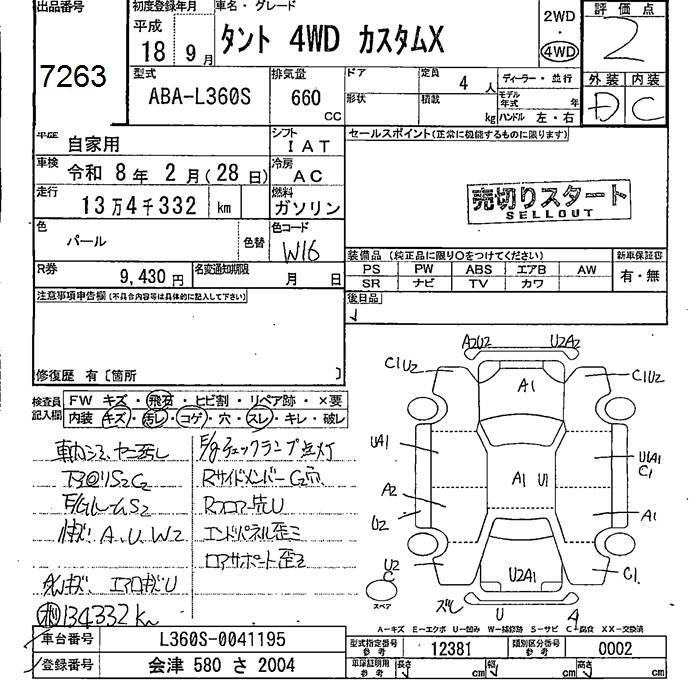 出品番号
7263
初度登録年月
平成
18年 9月
車名・グレード
タント 4WD カスタムX
2WD
・
4WD
評価点
2
外装 内装
D C
型式
ABA-L360S
排気量
660 CC
ドア
形状
定員
4 人
積載
kg
ディーラー・並行
モデル年式 年
ハンドル 左・右
車歴
自家用
シフト
IAT
車検
令和 8年 2月(28日)
冷房
AC
走行
13万4千332 km
燃料
ガソリン
色
パール
色替
色コード
W16
R券
9,430円
名変通知期限
月 日
注意事項申告欄(不具合内容等は具体的に記入して下さい)
修復歴 有〔箇所 〕
セールスポイント(正常に機能するものに限ります)
売切りスタート
SELLOUT
装備品(純正品に限り○をつけてください)
PS PW ABS エアB AW
SR ナビ TV カワ
新車保証書
有・無
後日品
検査員記入欄
FW キズ・飛石・ヒビ割・リペア跡・×要
内装 キズ・汚レ・コゲ・穴・スレ・キレ・破レ
E/gチェックランプ点灯
RサイドメンバーC2穴
Rフロアー先U
エンドパネル歪ミ
ロアサポート歪ミ
A、U、W2
134332km
A2U2 U2A2
C1U2 C1U2
A1
UA1 U1A1
C1
A1 U1
A2 A1
U2
U2
C
C1
U2A1
スペア
ズレ
U
A
A-キズ E-エクボ U-凹み W-補修跡 S-サビ C-腐食 XX-交換済
車台番号
L360S-0041195
登録番号
会津 580 さ 2004
型式指定番号
参考
12381
類別区分番号
参考
0002
車庫証明用
参考
長さ cm 幅 cm 高さ cm